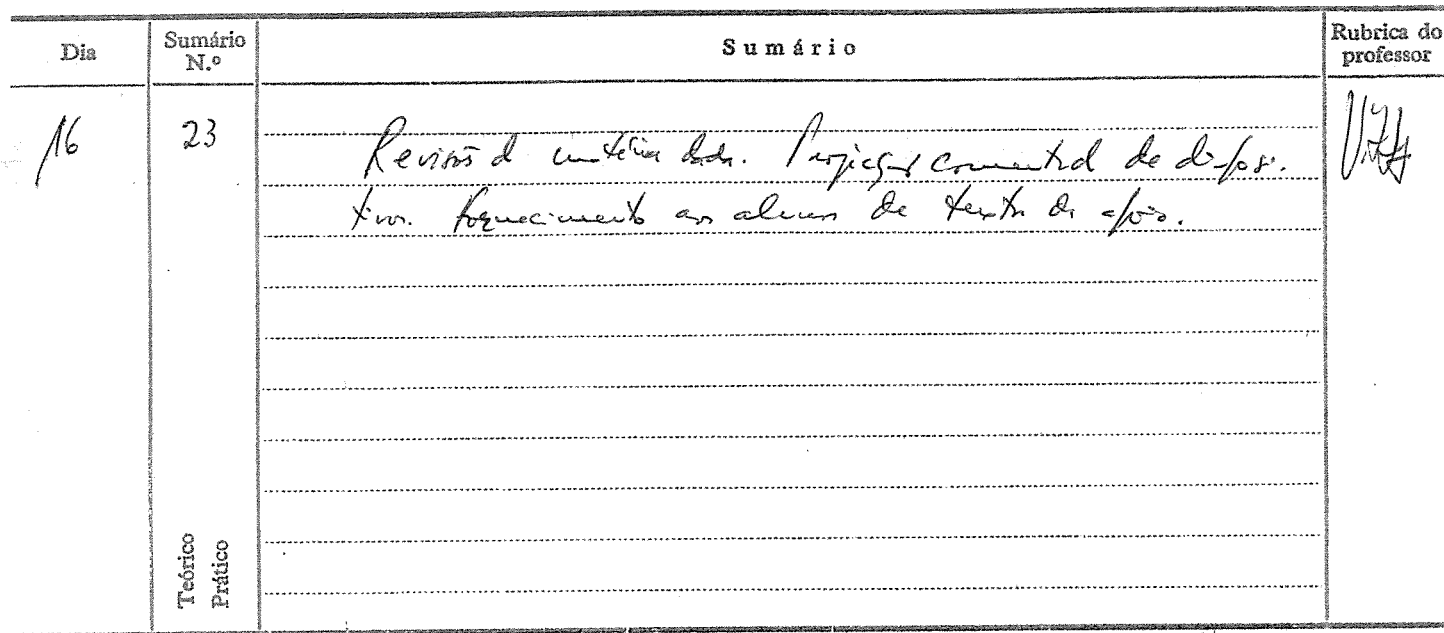 Dia
Sumário N.º
Sumário
Rubrica do professor
16
23
Revisões da matéria dada. Projecção comentada de diaposi-
tivos. Fornecimento aos alunos de textos de apoio.
Teórico
Prático